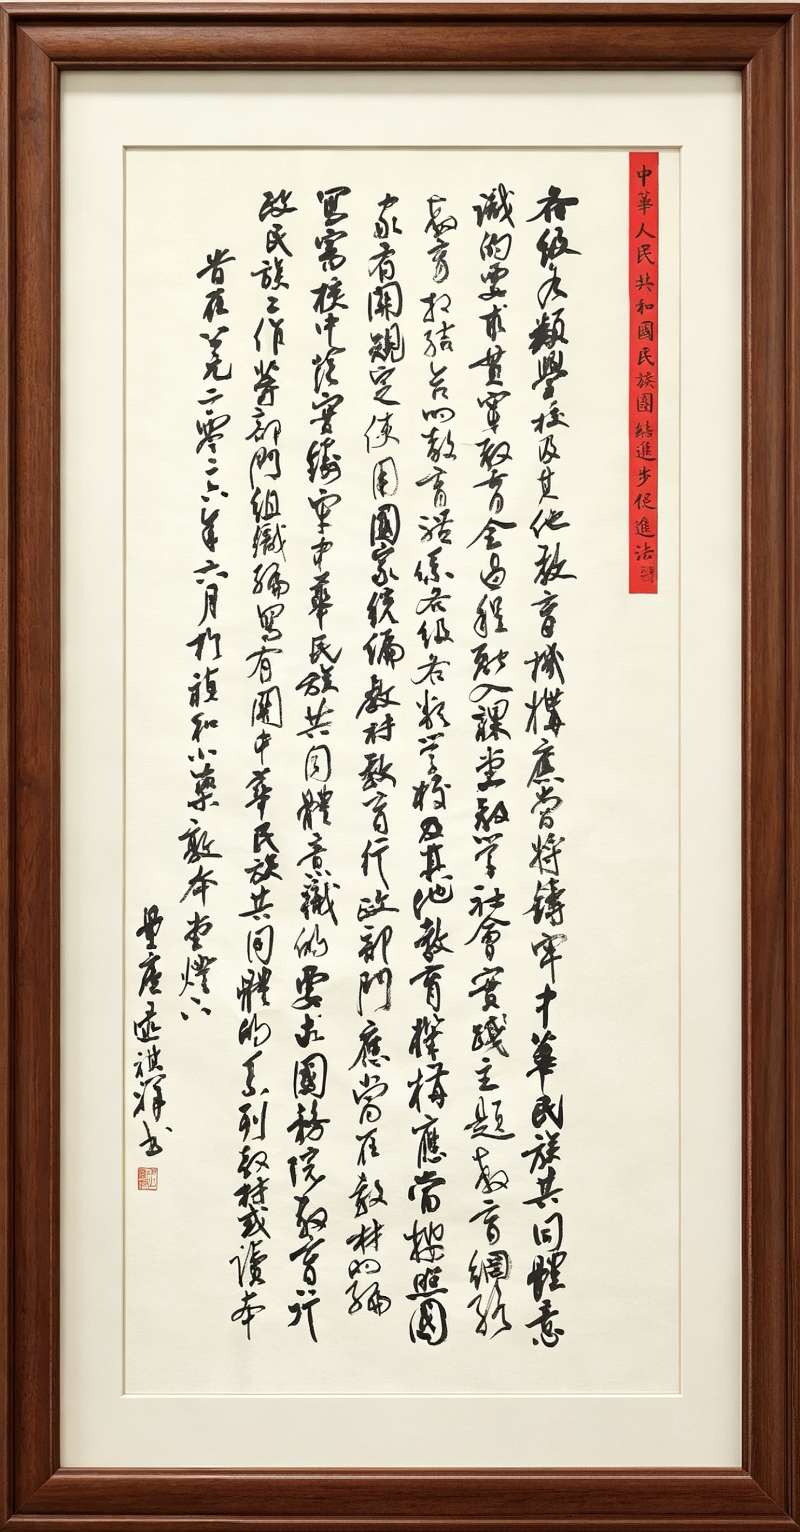 中華人民共和國民族團結進步促進法
各級各類學校及其他教育機構應當將鑄牢中華民族共同體意
識的要求貫穿教育全過程融入課堂教學社會實踐主題教育網絡
教育相結合的教育體系各級各類学校及其他教育機構應當按照國
家有關規定使用國家統編教材教育行政部門應當在教材的編
寫審核中落實鑄牢中華民族共同體意識的要求國務院教育行
政民族工作等部門組織編寫有關中華民族共同體的系列教材或讀本
昔在公元二零二六年六月於禎和小藥敦本堂燈下
祺祥书